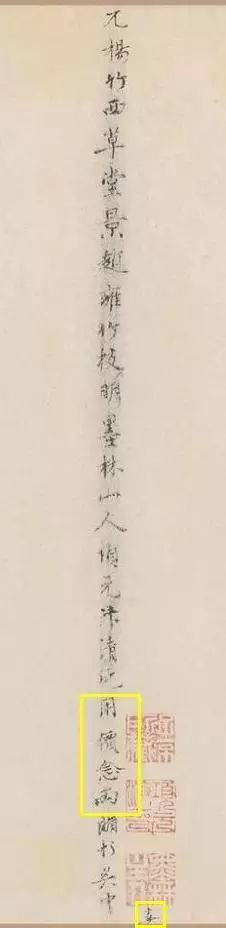 元楊竹西草堂景趙雍竹枝明墨林山人項元汴清玩用價念兩購於吳中